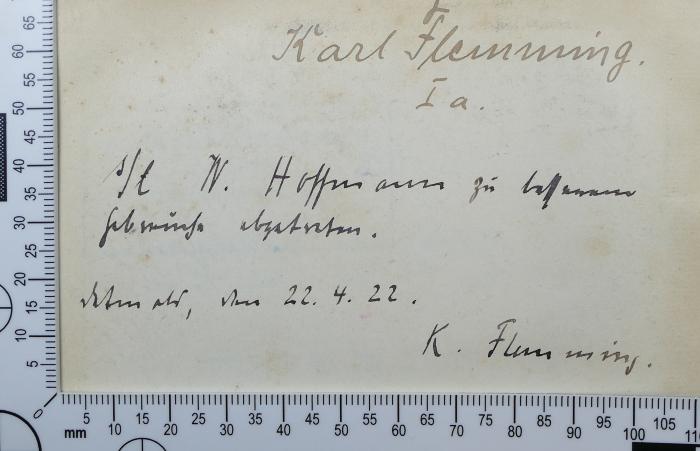 Karl Flemming.
I a.
W. Hoffmann zu besserem
Gebrauche abgetreten.
Detmold, den 22. 4. 22.
K. Flemming.
65
60
55
50
45
40
35
30
25
20
15
10
5
0
mm 5 10 15 20 25 30 35 40 45 50 55 60 65 70 75 80 85 90 95 100 105